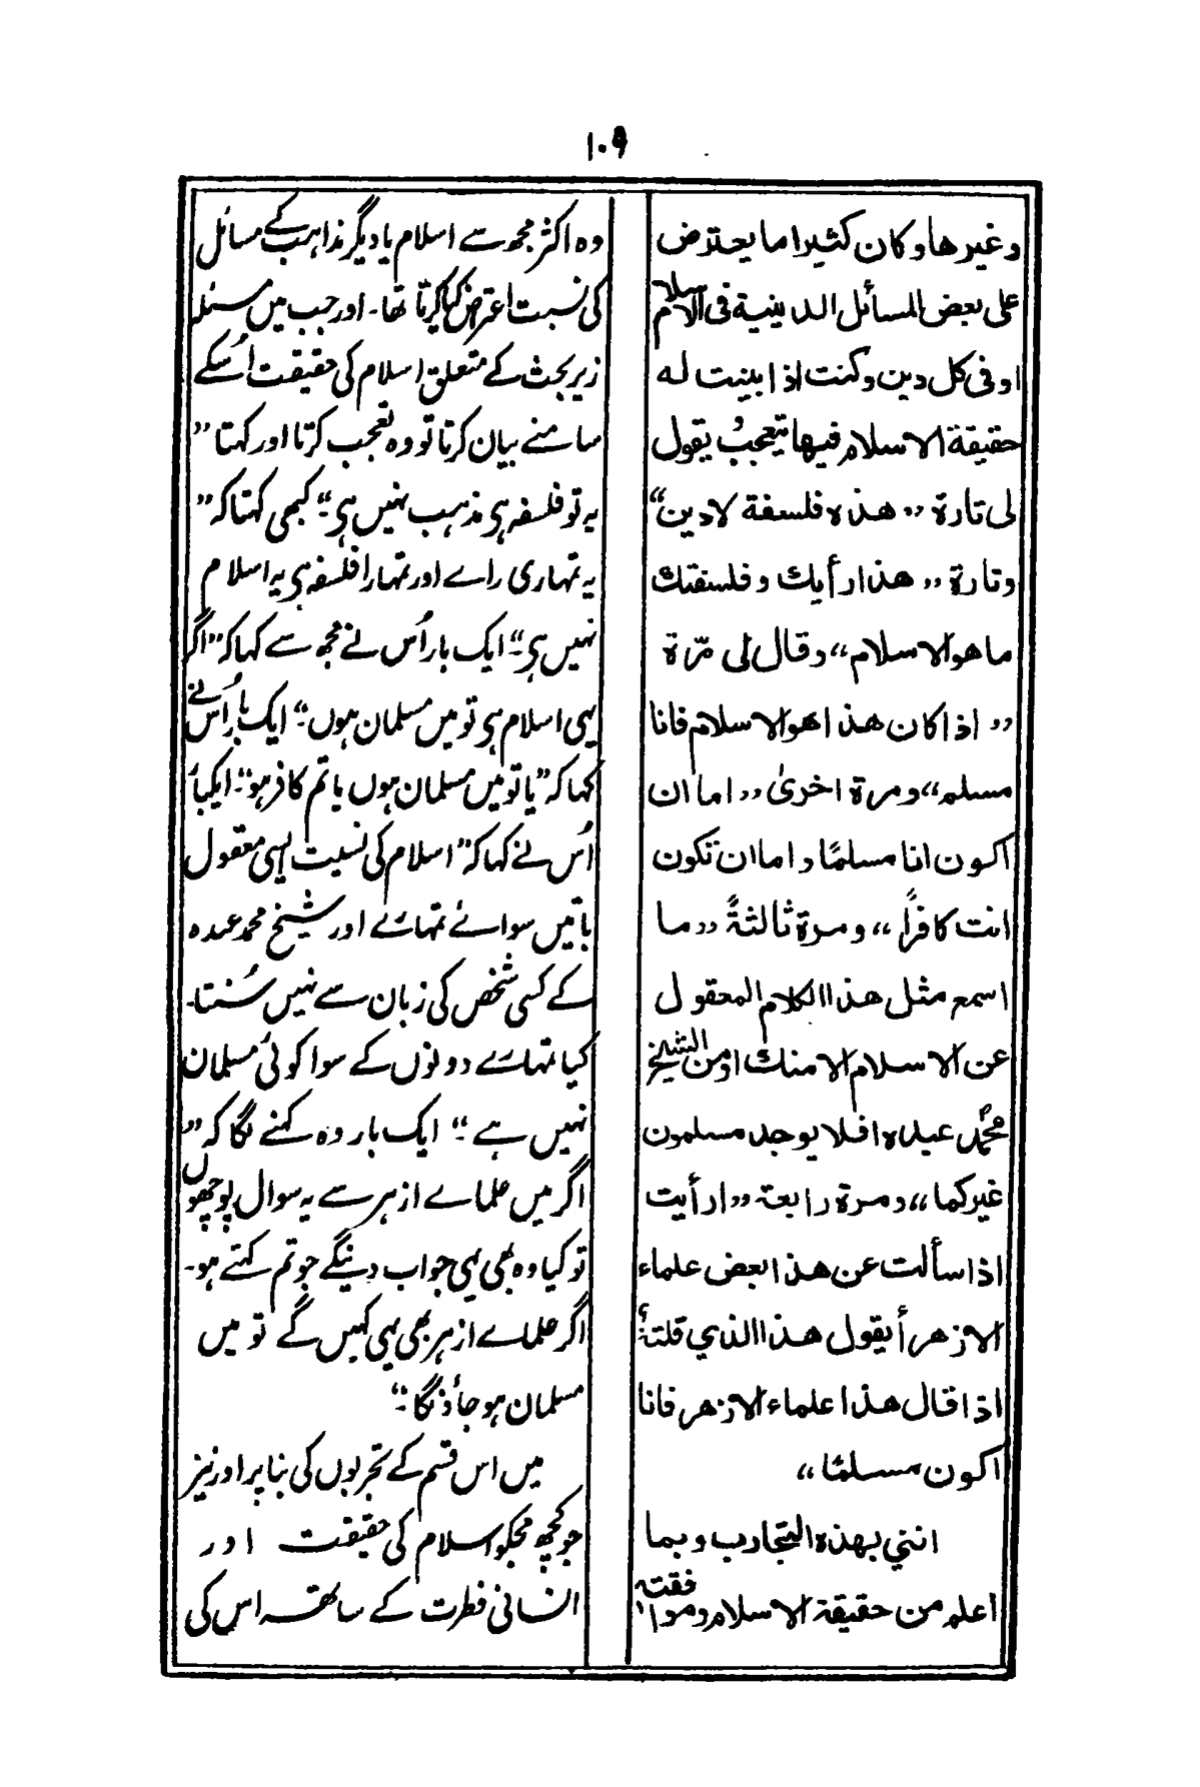 ۱۰۹
وغیرها وکان کثیرا ما یعترض
علی بعض المسائل الدینیة فی الاسلام
او فی کل دین وکنت اذا بینت له
حقیقة الاسلام فیها یتعجبُ و یقول
لی تارة ,,هذه فلسفة لا دین“
وتارة ,,هذا رأیك وفلسفتك
ما هو الاسلام،، وقال لی مرّة
,,اذا کان هذا هو الاسلام فانا
مسلم،، ومرة اخریٰ ,,اما ان
اکون انا مسلمًا واما ان تکون
انت کافرًا،، ومرة ثالثةً ,,ما
اسمع مثل هذا الکلام المعقول
عن الاسلام الا منك او من الشیخ
محمّد عبده افلا یوجد مسلمون
غیرکما،، ومرة رابعة ,,ارأیت
اذا سألت عن هذا بعض علماء
الازهر أیقول هذا الذي قلتهٗ؟
اذا قال هذا علماء الازهر فانا
اکون مسلمًا،،
انني بهذه التجارب وبما
اعلم من حقیقة الاسلام وموافقته
وہ اکثر مجھ سے اسلام یا دیگر مذاہب کے مسائل
کی نسبت اعتراض کیا کرتا تھا۔ اور جب میں مسئلہ
زیر بحث کے متعلق اسلام کی حقیقت اُسکے
سامنے بیان کرتا تو وہ تعجب کرتا اور کہتا ”
یہ تو فلسفہ ہی مذہب نہیں ہی“۔ کبھی کہتا کہ ”
یہ تمہاری راے اور تمہارا فلسفہ ہی یہ اسلام
نہیں ہی“۔ ایک بار اُس نے مجھ سے کہا کہ ”اگر
یہی اسلام ہی تو میں مسلمان ہوں“۔ ایک بار اُس نے
کہا کہ ”یا تو میں مسلمان ہوں یا تم کافر ہو“۔ ایکبار
اُس نے کہا کہ ”اسلام کی نسبت ایسی معقول
باتیں سوائے تمہارے اور شیخ محمد عبدہ
کے کسی شخص کی زبان سے نہیں سُنتا۔
کیا تمہارے دونوں کے سوا کوئی مسلمان
نہیں ہے“۔ ایک بار وہ کہنے لگا کہ ”
اگر میں علماے ازہر سے یہ سوال پوچھوں
تو کیا وہ بھی یہی جواب دینگے جو تم کہتے ہو۔
اگر علماے ازہر بھی یہی کہیں گے تو میں
مسلمان ہو جاؤنگا“۔
میں اس قسم کے تجربوں کی بنا پر اور نیز
جو کچھ مجکو اسلام کی حقیقت اور
انسانی فطرت کے ساتھ اس کی